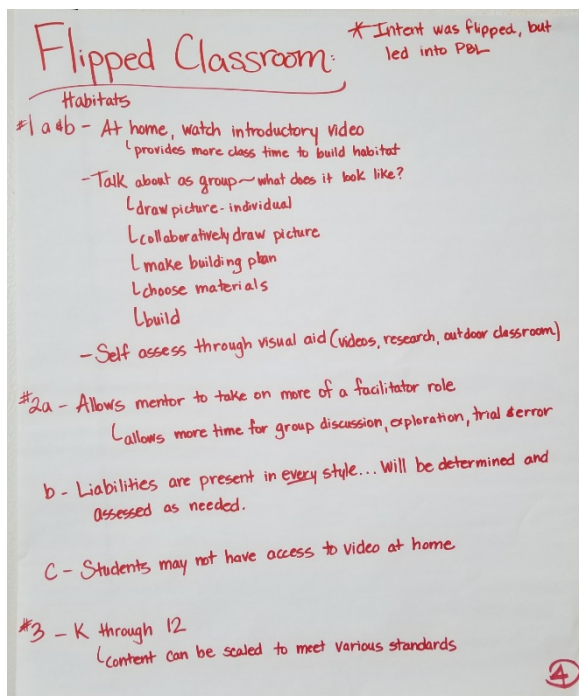 Flipped Classroom:
* Intent was flipped, but
led into PBL
Habitats
#1 a&b - At home, watch introductory video
provides more class time to build habitat
- Talk about as group ~ what does it look like?
draw picture - individual
collaboratively draw picture
make building plan
choose materials
build
- Self assess through visual aid (videos, research, outdoor classroom)
#2a - Allows mentor to take on more of a facilitator role
allows more time for group discussion, exploration, trial & error
b - Liabilities are present in every style... Will be determined and
assessed as needed.
C - Students may not have access to video at home
#3 - K through 12
content can be scaled to meet various standards
4